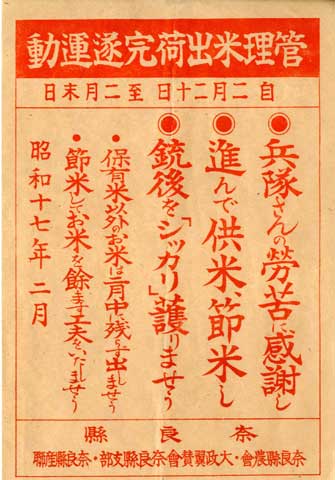 管理米出荷完遂運動
自二月二十日至二月末日
◉兵隊さんの勞苦に感謝し
◉進んで供米、節米し
◉銃後を「シッカリ」護りませう
●保有米以外のお米は二月中に残らず出しませう
●節米してお米を餘ます工夫をいたしませう
昭和十七年二月
奈良縣
奈良縣農會・大政翼賛會奈良縣支部・奈良縣産聯